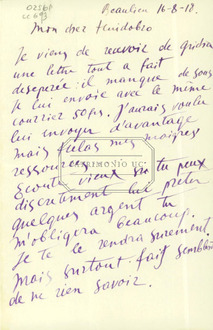 025bP
cc 693
Beaulieu 16-8-18.
Mon cher Huidobro
Je viens de recevoir de gridna
une lettre tout a fait
desesperée: il manque de sous
Je lui envoie avec le même
courrier 50frs. J'aurais voulu
lui envoyer d'avantage
mais helas mes maigres
ressources
PATRIMONIO UC
Ecoute vieux si tu peux
discretement lui preter
quelques argent tu
m'obligera beaucoup.
Je te le rendra surement.
Mais surtout fait semblant
de ne rien savoir.